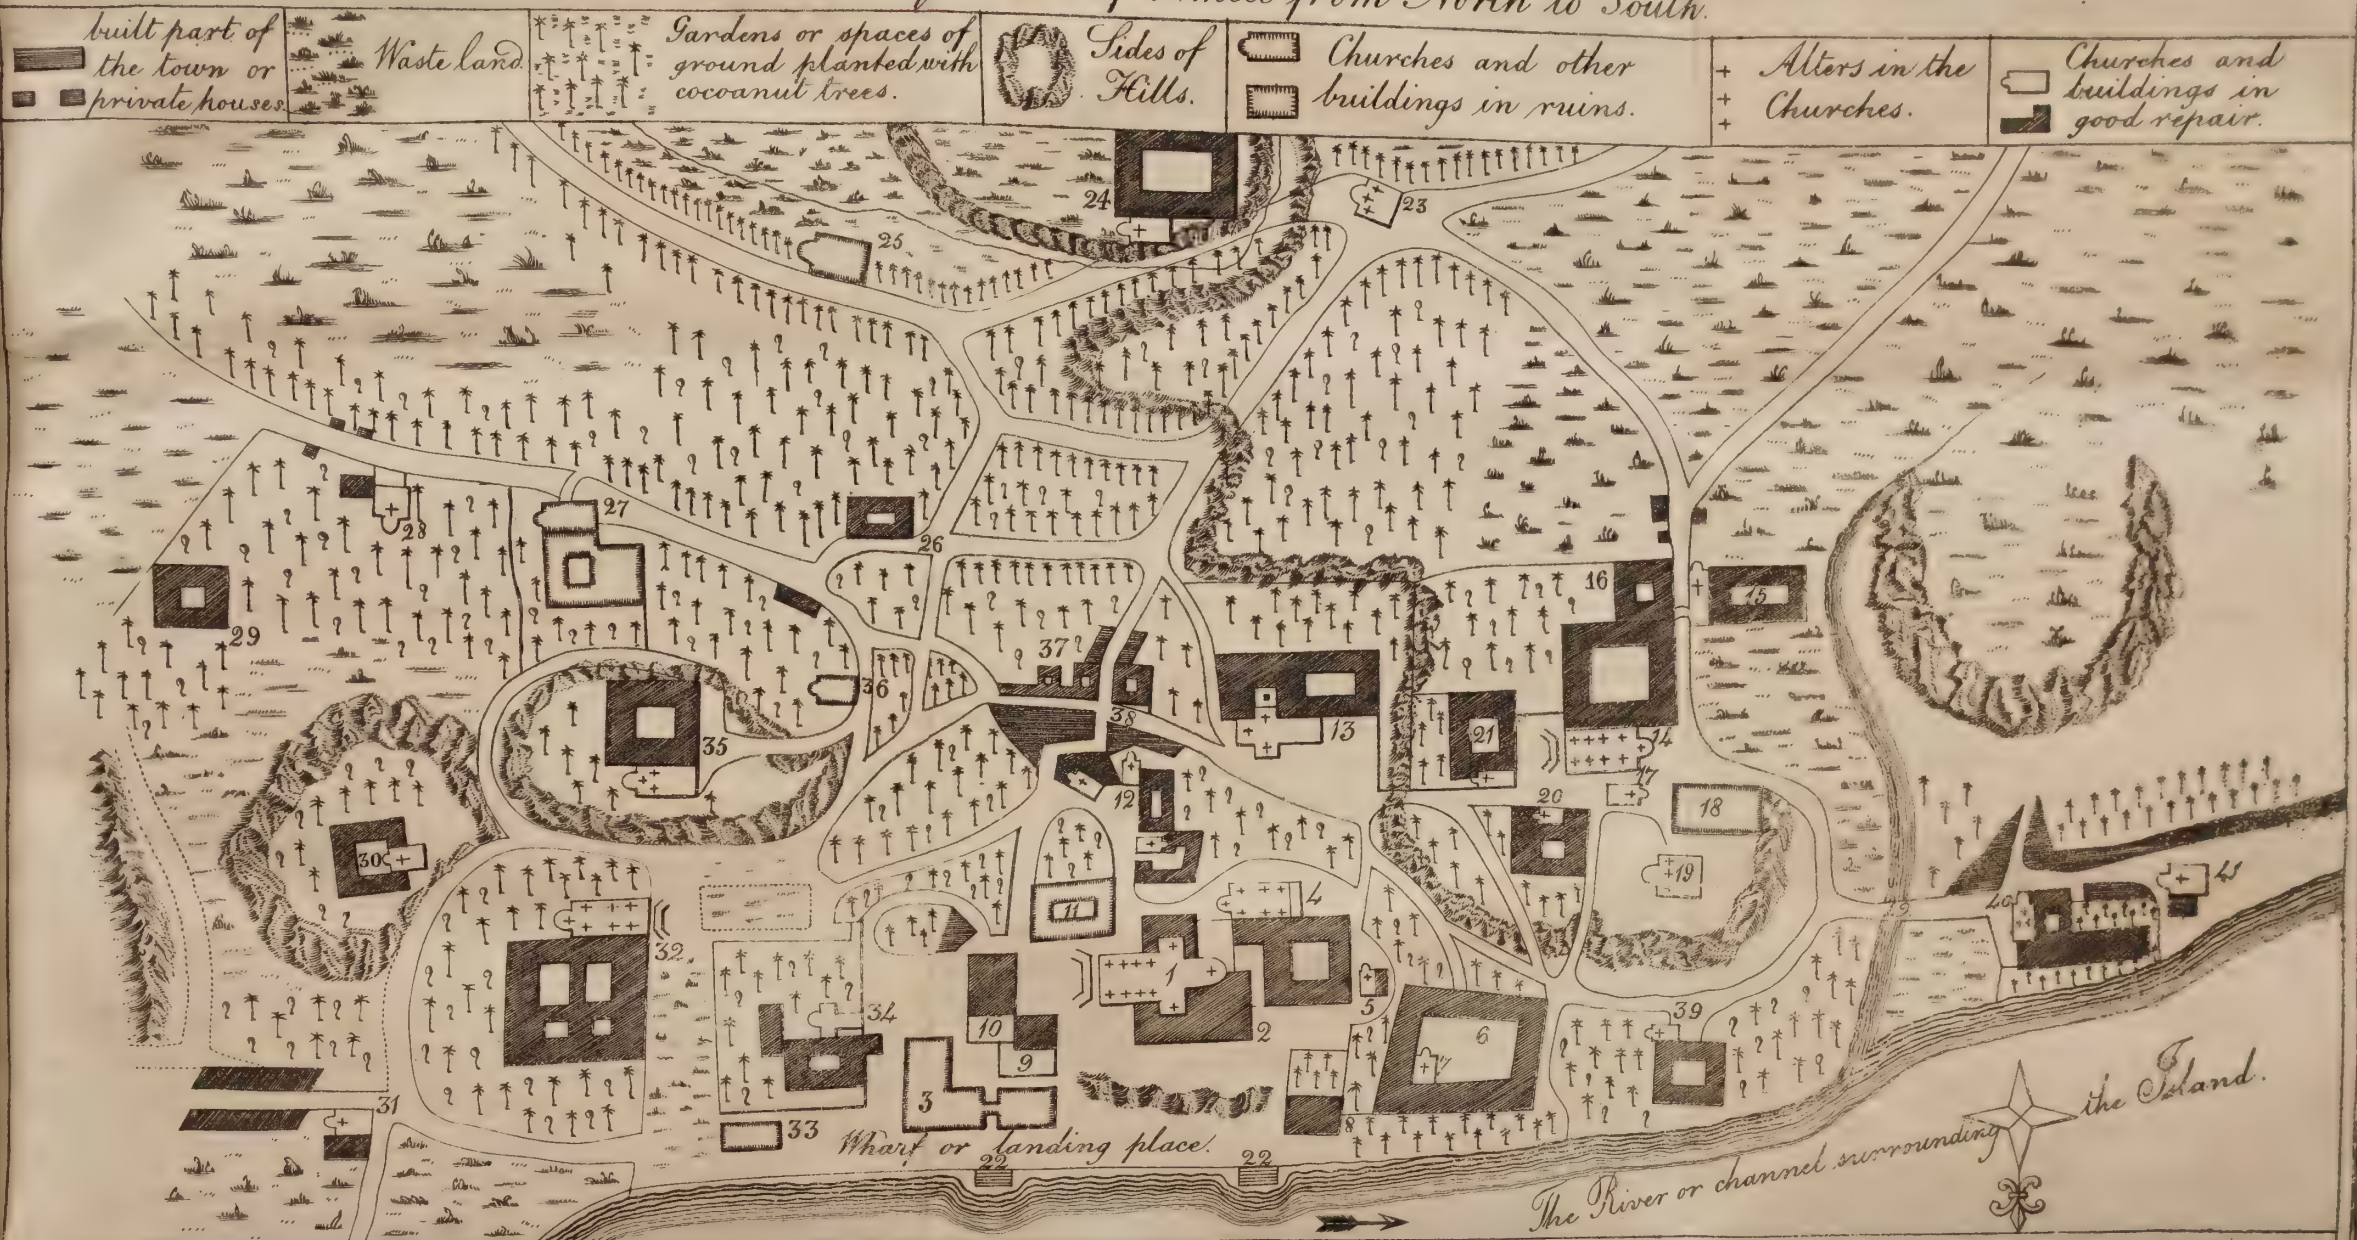 from North to South.
built part of
the town or
private houses.
Waste land
Gardens or spaces of
ground planted with
cocoanut trees.
Sides of
Hills.
Churches and other
buildings in ruins.
Alters in the
Churches.
Churches and
buildings in
good repair.
24
23
25
28
27
26
29
16
15
37
36
38
35
13
21
14
12
17
20
18
30
19
11
4
32
1
5
45
40
34
10
2
6
39
9
3
7
8
31
33
Wharf or landing place.
22
22
The River or channel surrounding
the Island.